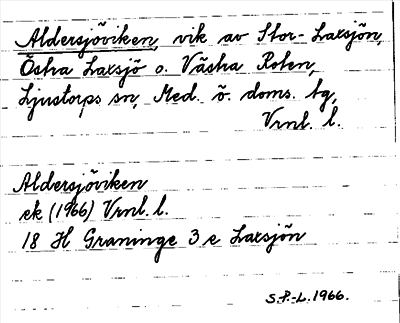 Aldersjöviken, vik av Stor-Laxsjön,
Östra Laxsjö o. Västra Roten,
Ljustorps sn, Med. ö. doms. tg,
Vrnl. l.
Aldersjöviken
ek (1966) Vrnl. l.
18 H Graninge 3 e Laxsjön
S.P.-L. 1966.